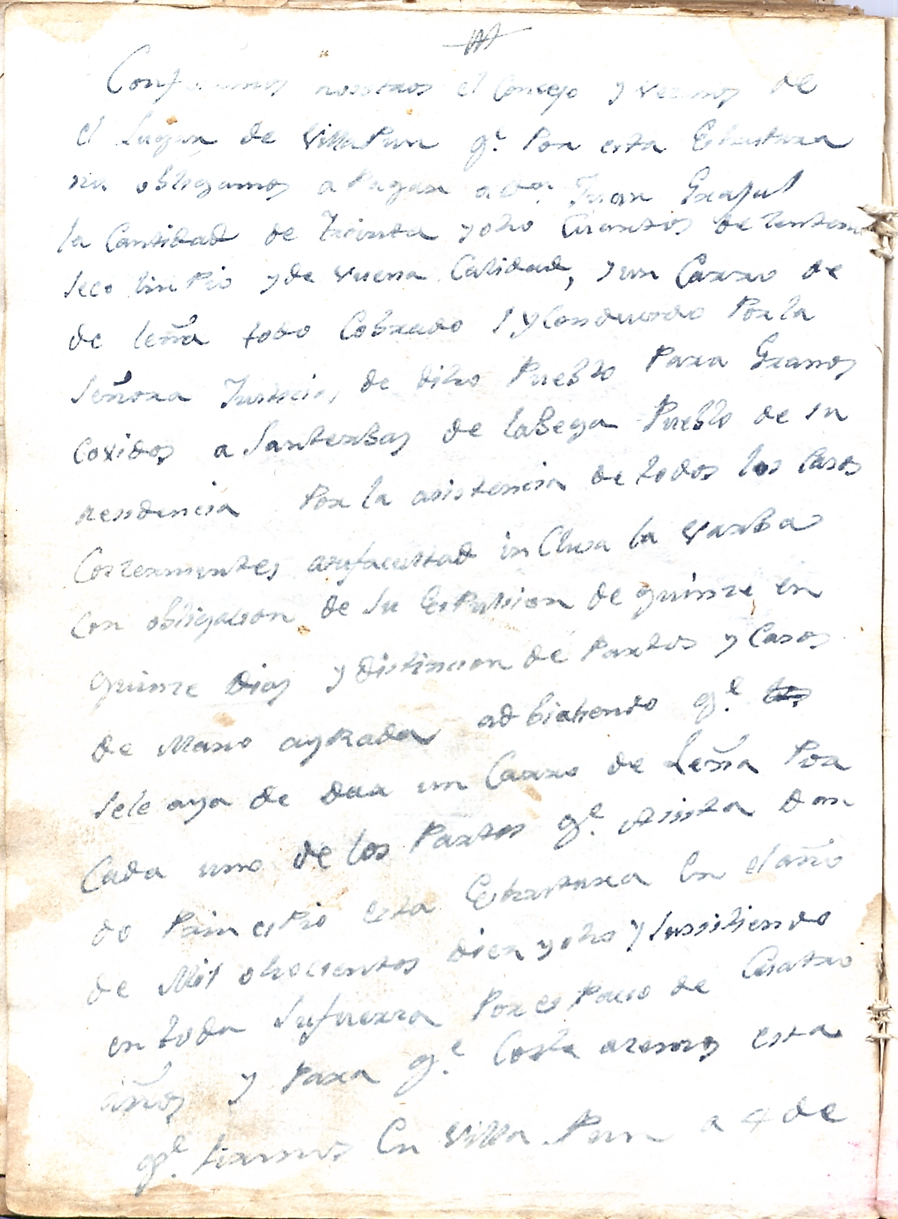 Confesamos nosotros el Conzejo y Vezinos de
el Lugar de VillaPun q.e Por esta Escritura
nu obligamos a Pagar a dn. Juan Graful
la Cantidad de Treinta y ocho Cuartos de Zenteno
seco linPio y de vuena Calidad, y un Carro de
de leña todo Cobrado y Conducido Por la
Señora Justicia, de dicho Pueblo Para Granos
coxidos a Santerbas de la Bega Pueblo de su
residencia Por la asistencia de todos los Casos
Correxpondientes a su facultad inClusa la Varba
Con obligacion de su EsPulsion de quinze en
quinze Dias y distincion de Partos y Casos
de Mano ayrada adbirtiendo q.e
se le aya de dar un Carro de Leña Por
Cada uno de los Partos q.e asista Dan
do PrinciPio esta Escritura En el año
de Mil ochocientos diez y ocho y Sussitiendo
en toda Su fuerza Por esPacio de Cuatro
años y Para q.e Coste aremos esta
q.e firmamos En Villa Pun a 4 de